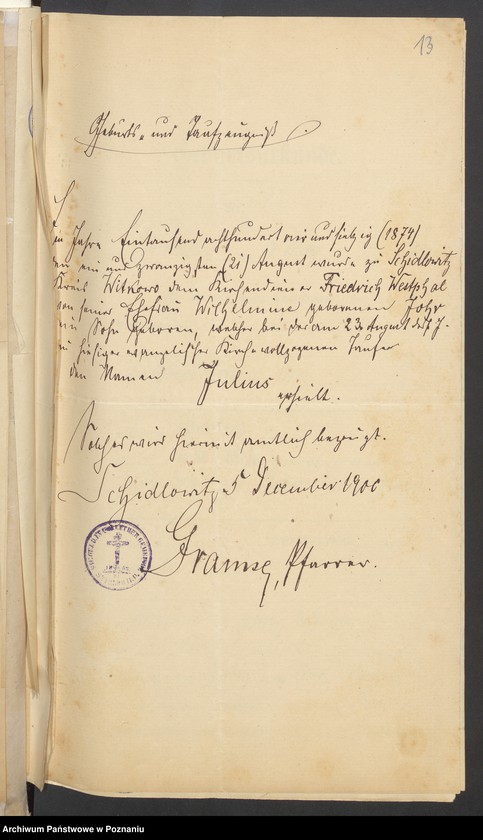 13
Geburts- und Taufzeugniß.
Im Jahre Eintausend achthundert vier und siebzig (1874)
den ein und zwanzigsten (21) August wurde zu Schidlowitz
Kreis Witkowo dem Kirchendiener Friedrich Westphal
von seiner Ehefrau Wilhelmine geborenen Johr
ein Sohn geboren, welcher bei der am 23 August d. J.
in hiesiger evangelischer Kirche vollzogenen Taufe
den Namen Julius
erhielt.
Solches wird hiermit amtlich bezeugt.
Schidlowitz 5 December 1900
Gramse, Pfarrer.
Archiwum Państwowe w Poznaniu